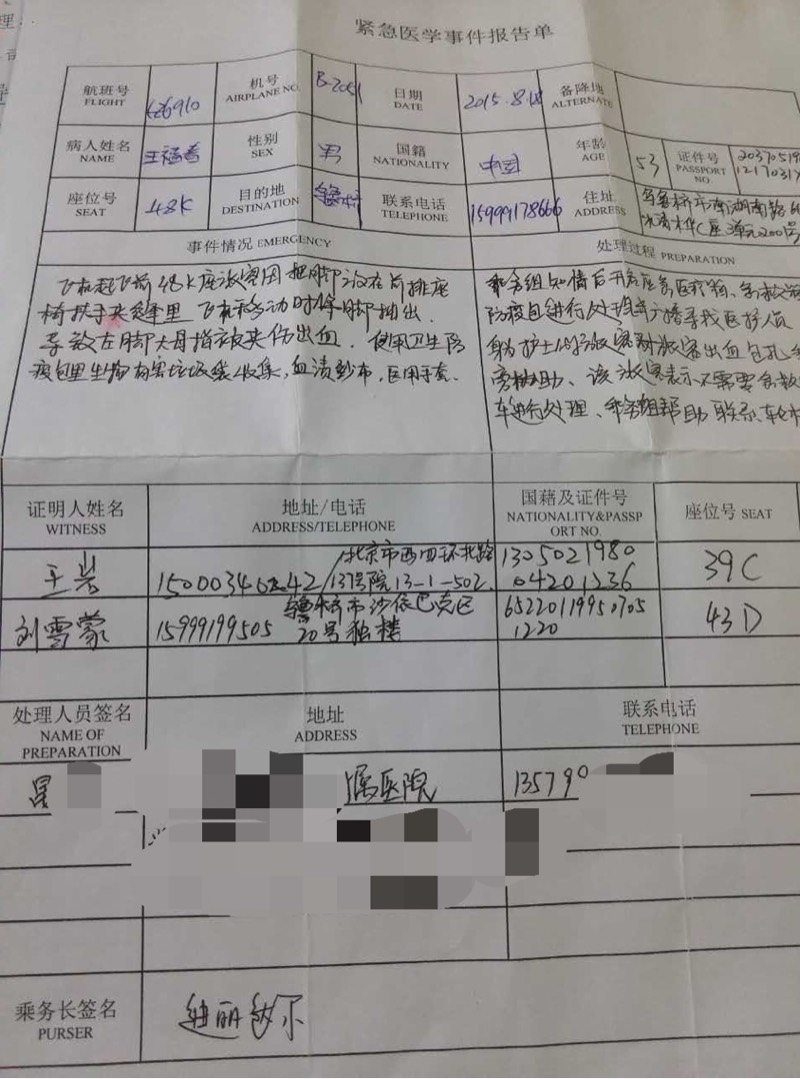 紧急医学事件报告单
航班号 FLIGHT CZ6910 机号 AIRPLANE NO. B-2051 日期 DATE 2015.8.18 备降地 ALTERNATE
病人姓名 NAME 性别 SEX 男 国籍 NATIONALITY 中国 年龄 AGE 53 证件号 PASSPORT NO
座位号 SEAT 48K 目的地 DESTINATION 联系电话 TELEPHONE 15999178666 住址 ADDRESS
事件情况 EMERGENCY 处理过程 PREPARATION
飞机起飞前48K座旅客因把脚放在前排座
椅扶手夹缝里 飞机移动时将脚抽出.
导致左脚大母指被夹伤出血. 使用卫生防
疫包里生物有害垃圾袋收集,血渍纱布,医用手套.
乘务组知情后开启应急医疗箱、
防疫包进行处理 广播寻找医护人员
身为护士的旅客对旅客出血包扎
协助、该旅客表示不需要
车进行处理、乘务组帮助联系轮
证明人姓名 WITNESS 地址/电话 ADDRESS/TELEPHONE 国籍及证件号 NATIONALITY&PASSPORT NO. 座位号 SEAT
北京市西四环北路
137号院13-1-502 39C
刘雪蒙 15999199505 乌鲁木齐市沙依巴克区 65220119950705
20号独楼 1220 43D
处理人员签名 NAME OF PREPARATION 地址 ADDRESS 联系电话 TELEPHONE
属医院 13579
乘务长签名 PURSER